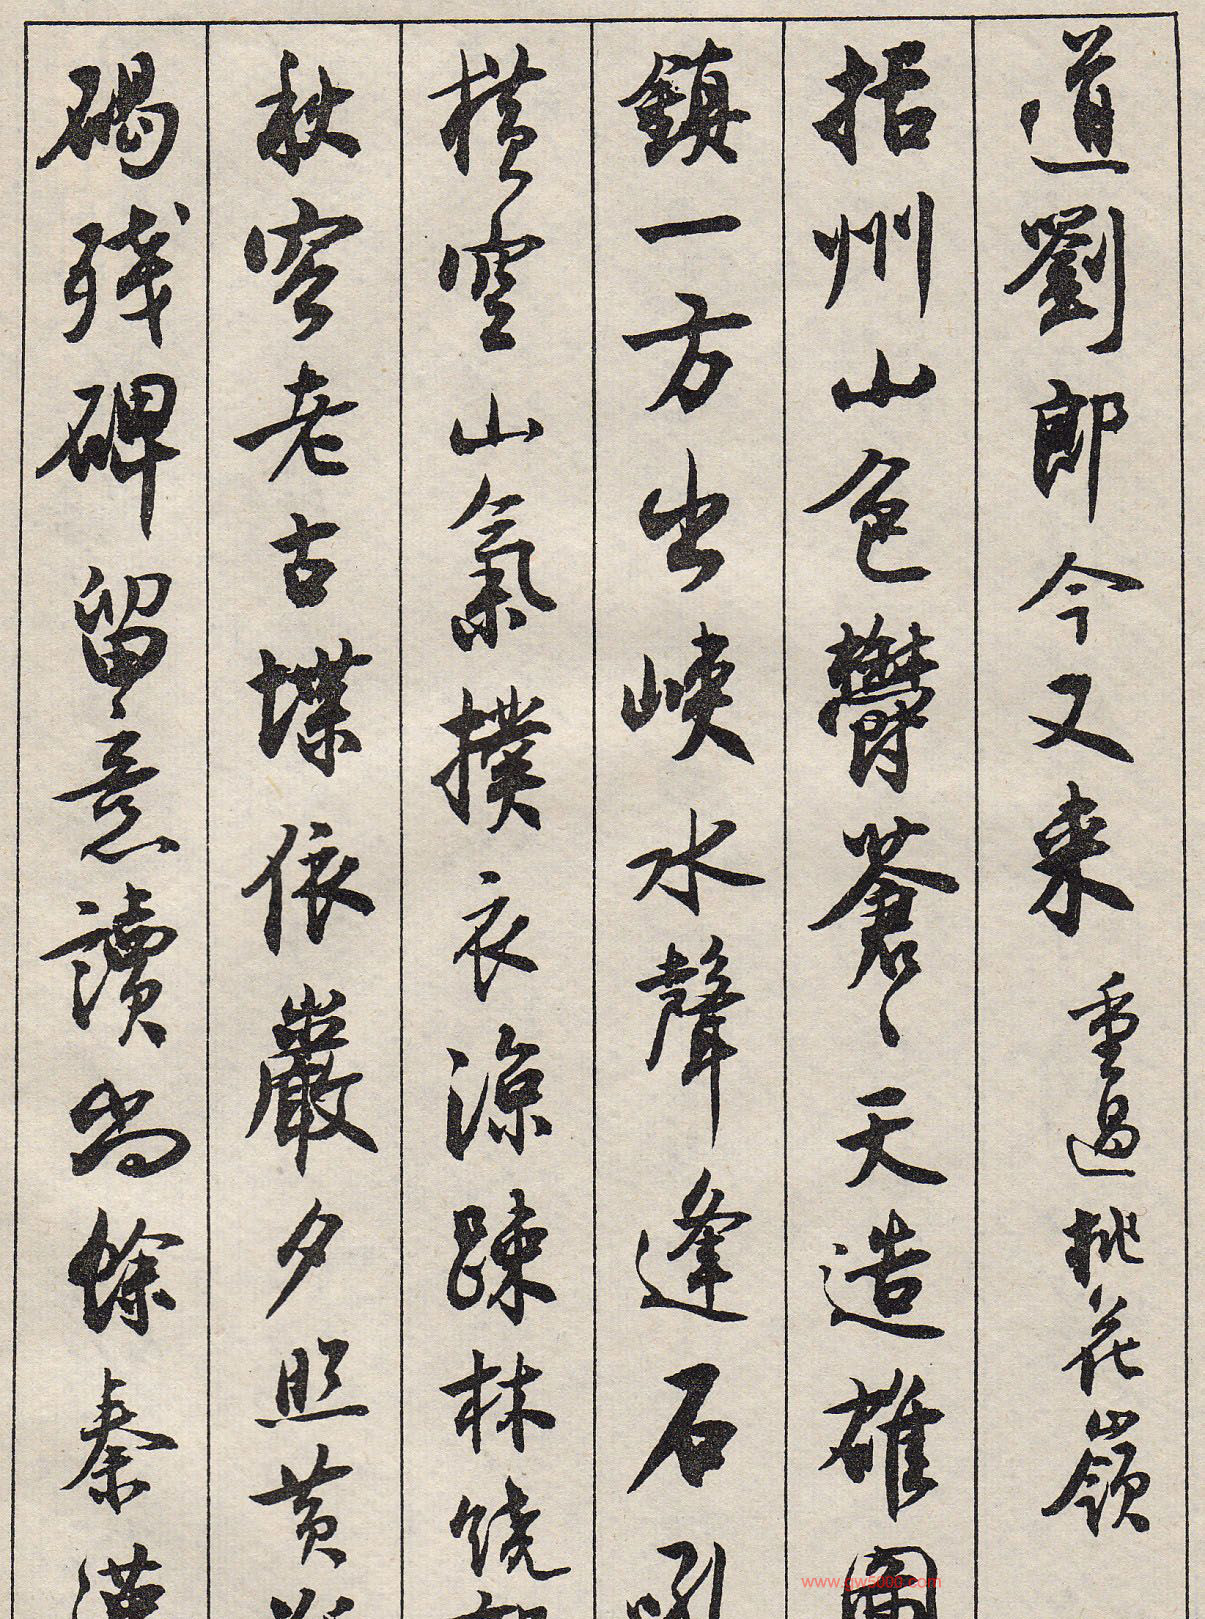 道劉郎今又来 重過桃花嶺
括州山色鬱蒼〻天造雄圖
鎮一方出峽水聲逢石吼
横空山氣撲衣涼疎林饒
秋容老古堞依巖夕照黄
碣殘碑留意讀尚餘秦漢
www.gw5000.com